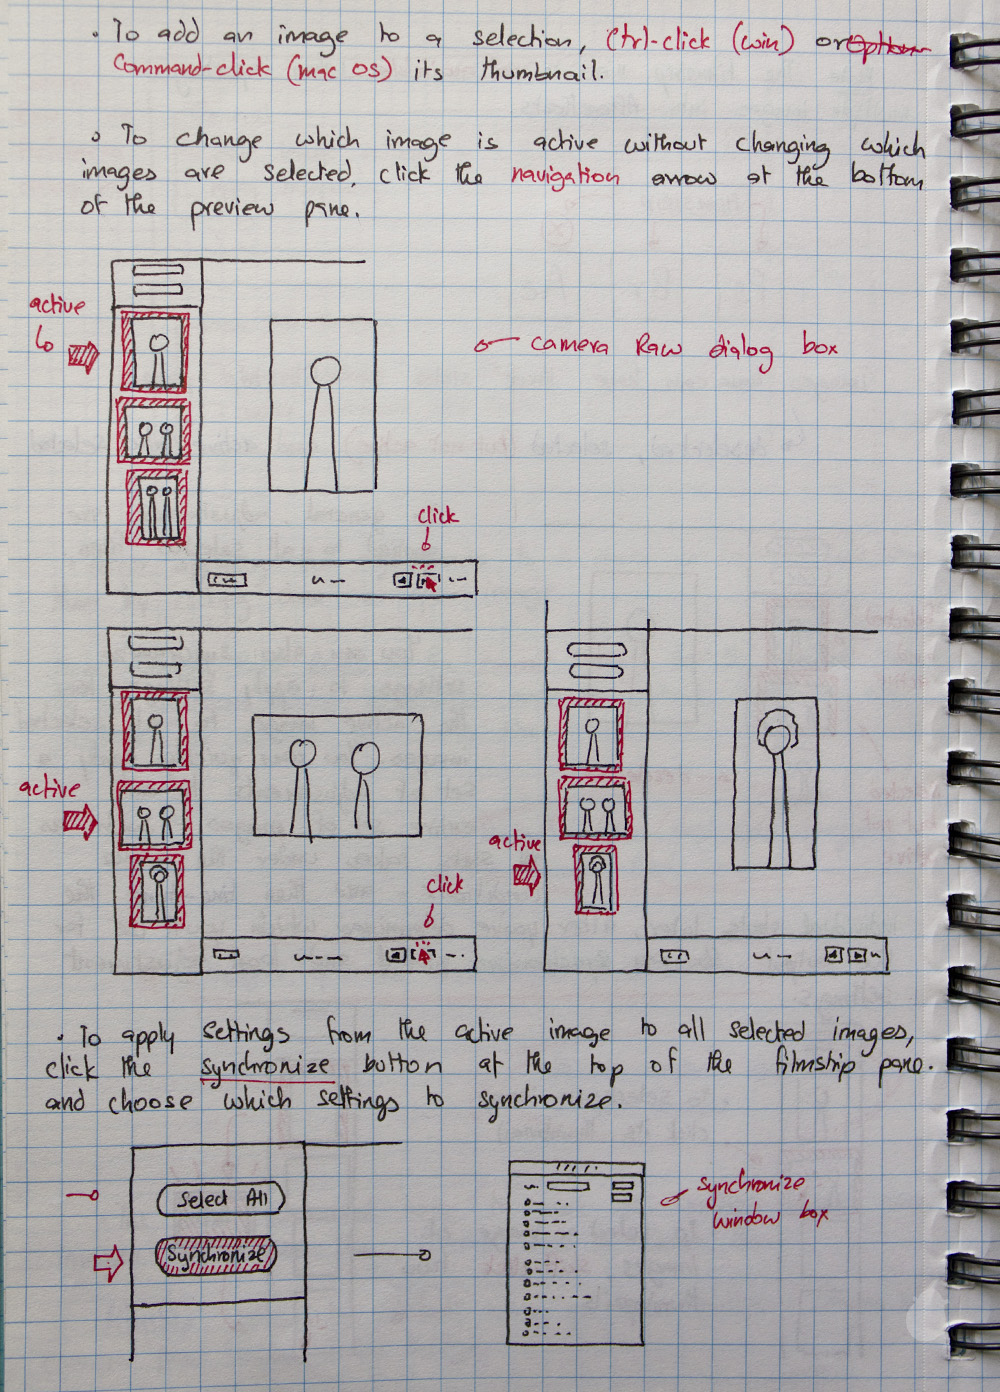 · To add an image to a selection, Ctrl-click (win) or option
Command-click (mac os) its thumbnail.
o To change which image is active without changing which
images are selected, click the navigation arrow at the bottom
of the preview pane.
active
camera Raw dialog box
click
active
active
click
· To apply settings from the active image to all selected images,
click the synchronize button at the top of the filmship pane.
and choose which settings to synchronize.
Select All
Synchronize
synchronize
window box